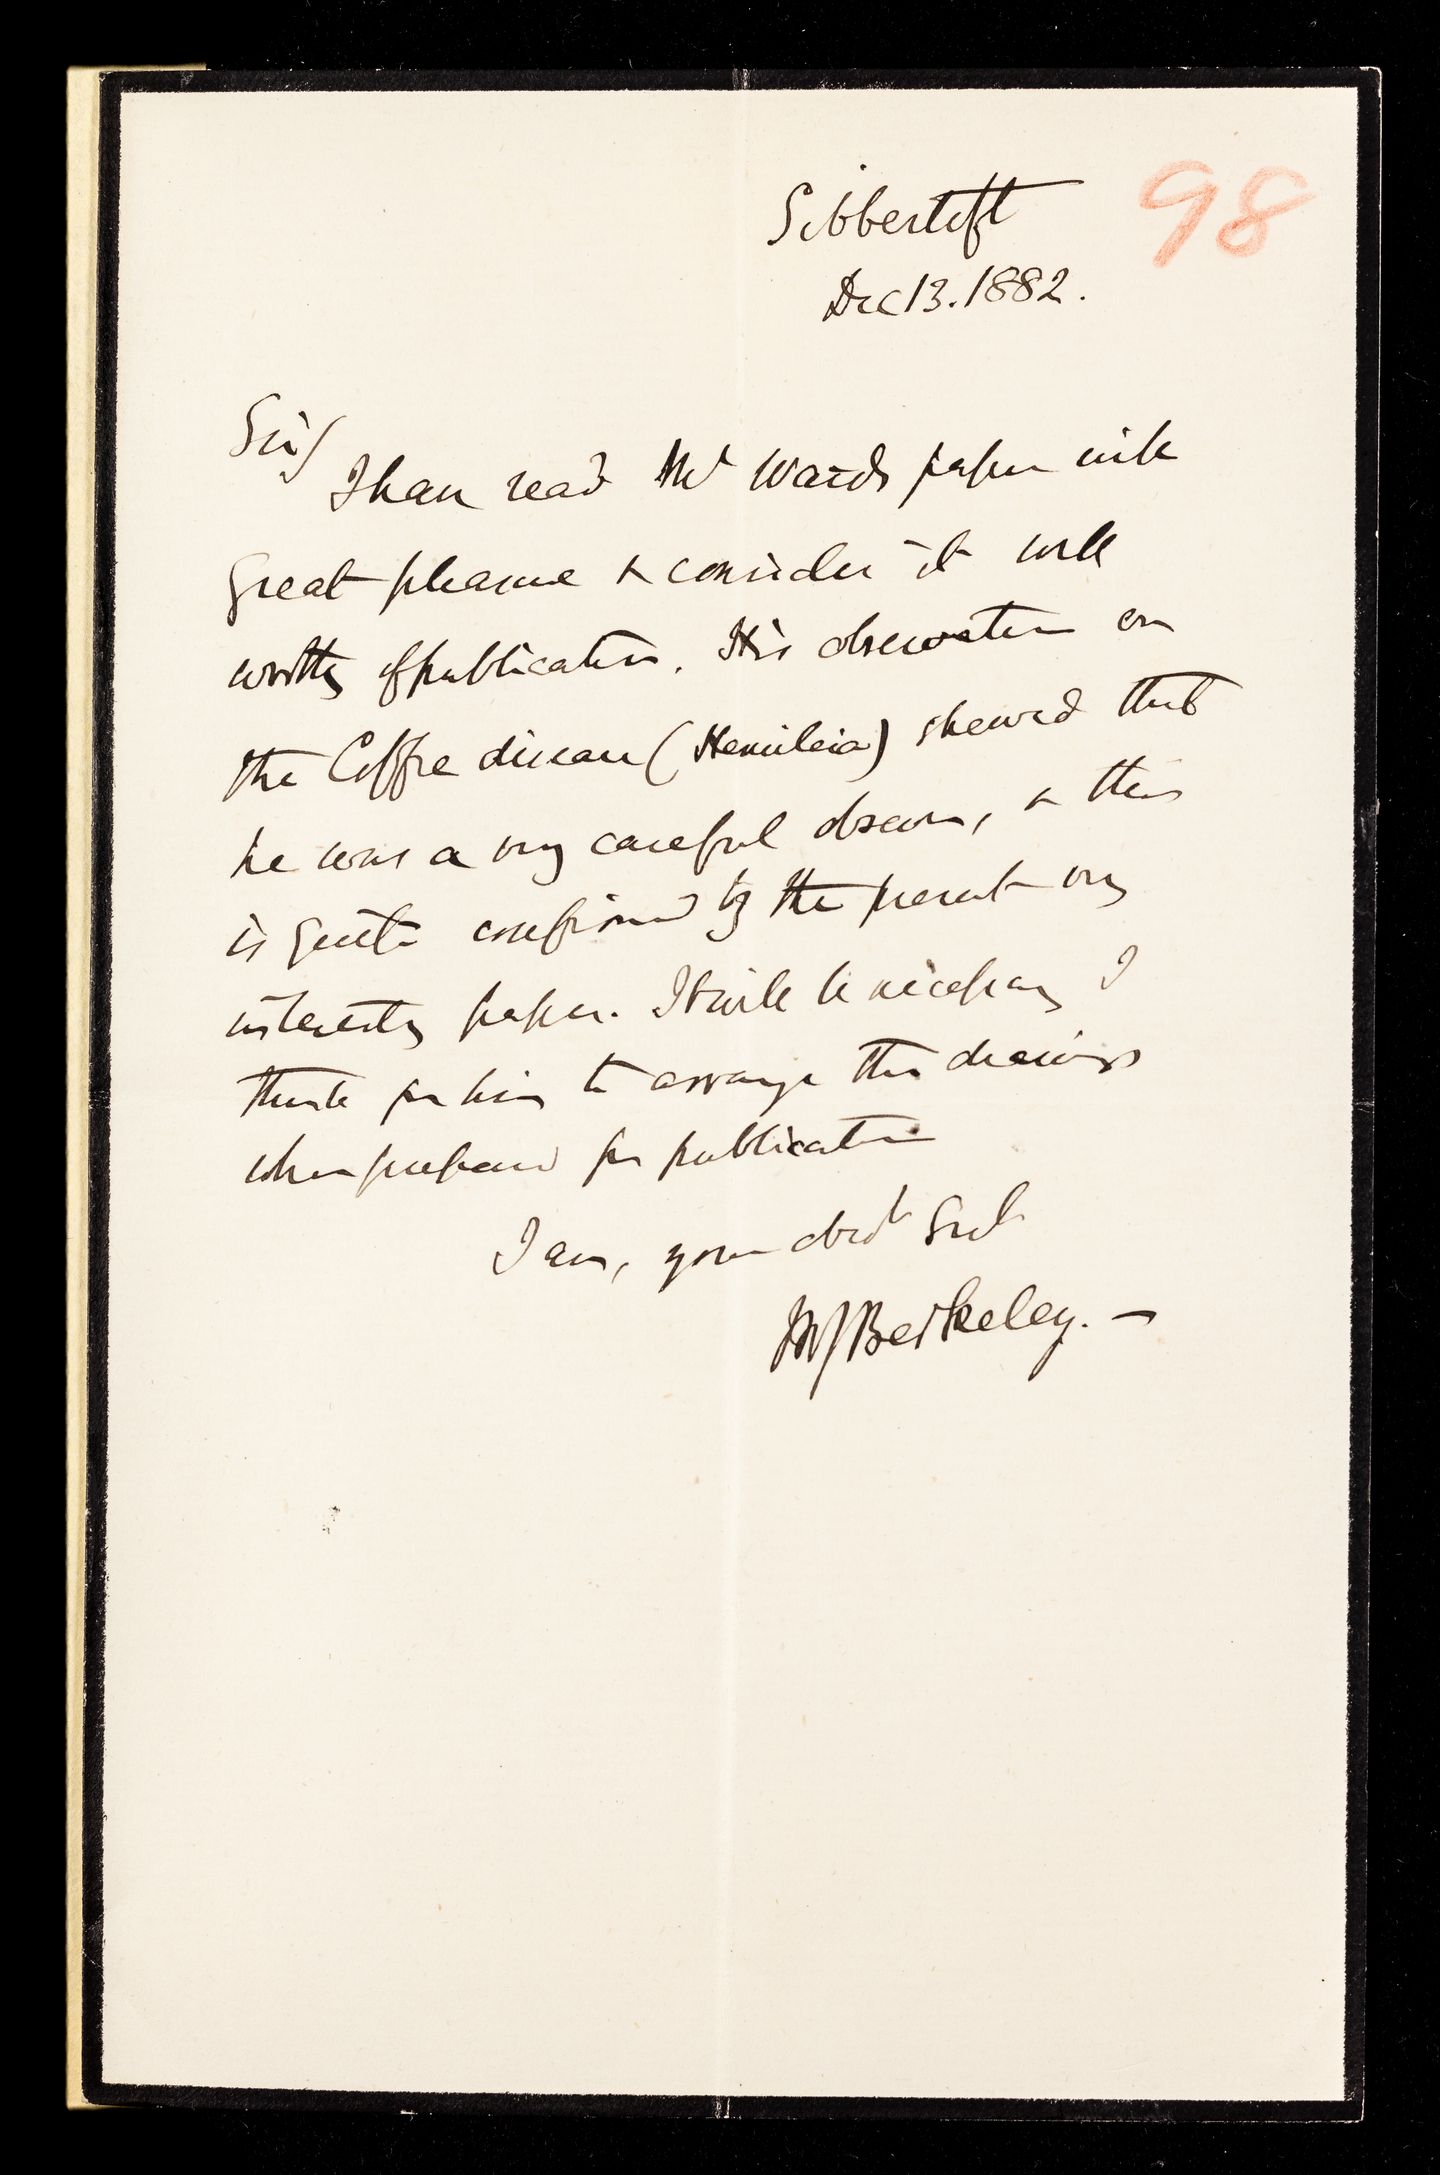 98
Sibbertoft
Dec 13. 1882.
Sir/
I have read Mr Wards paper with
great pleasure & consider it well
worthy of publication. His observation on
the Coffee disease (Hemileia) shewed that
he was a very careful observer, & this
is quite confirmed by the present very
interesting paper. It will be necessary I
think for him to arrange the drawings
when prepared for publication
I am, your obedt Servt
MJBerkeley. —